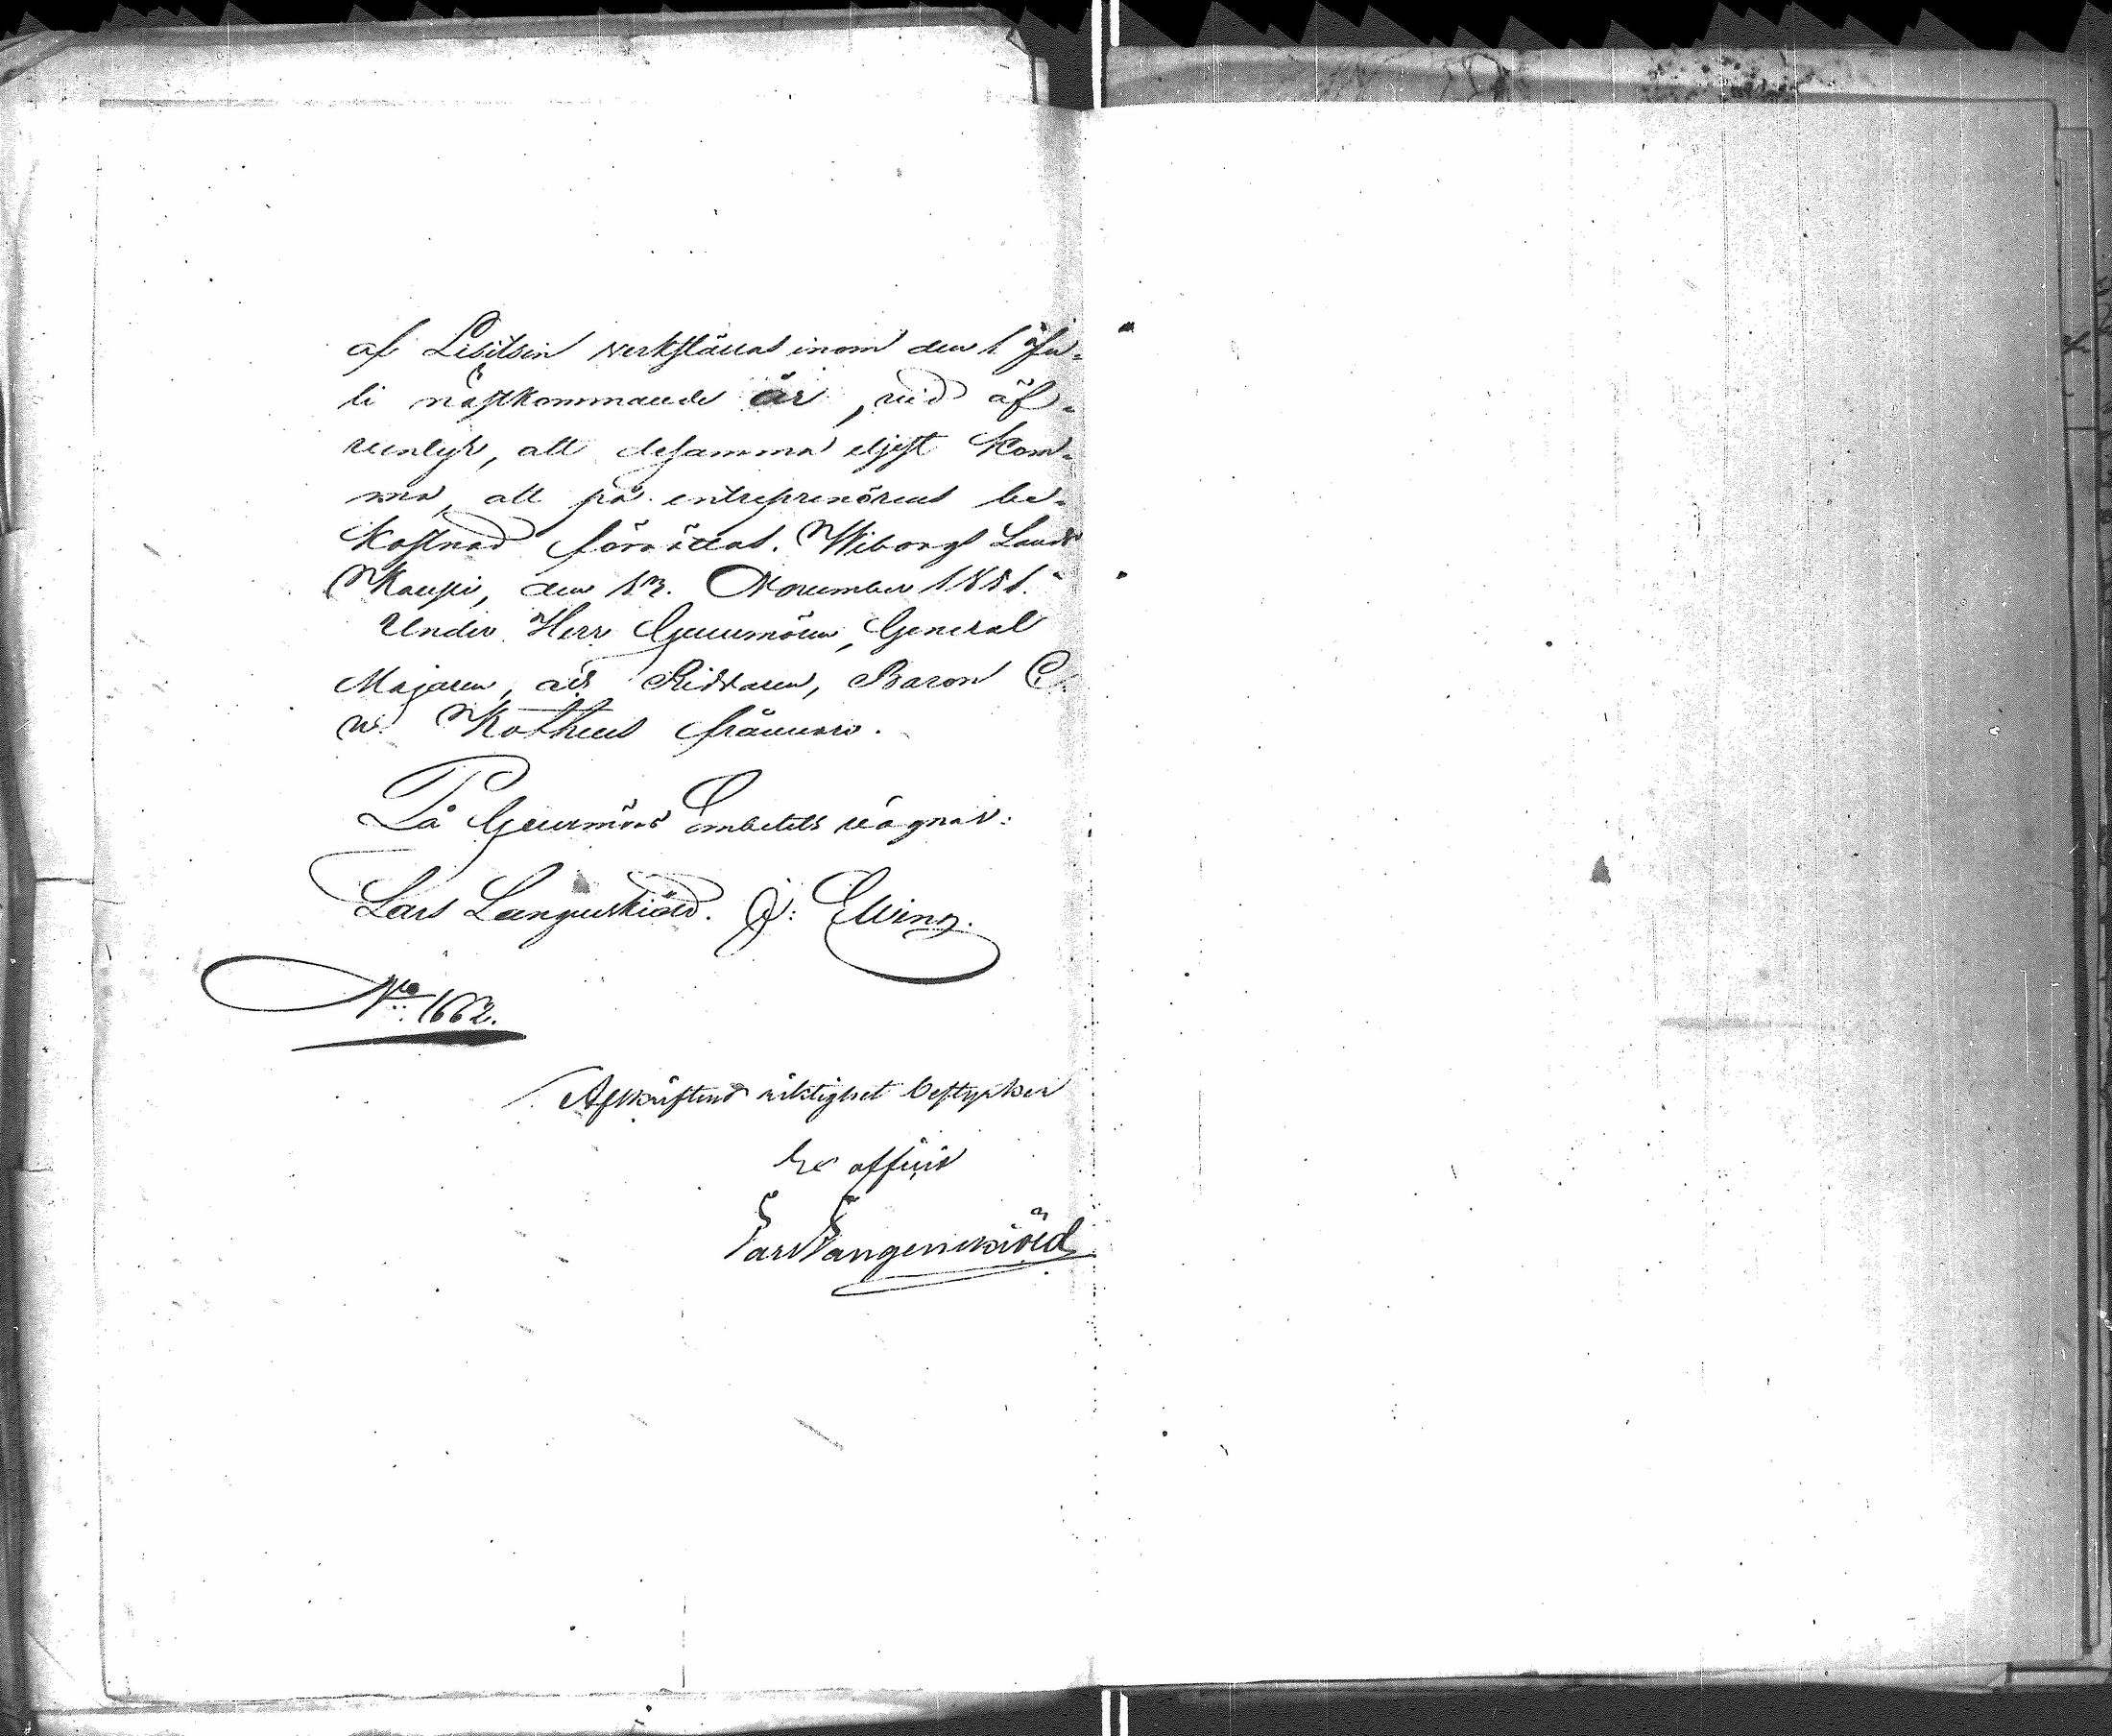 af Lisitsin verkställas inom den 1 Ju-
li nästkommande år, vid äf-
ventyr, att desamma eljest kom-
ma, att på entreprenörens be-
kostnad förrättas. Wiborgs Lands
Kansli, den 12. November 1851.
Under Herr Guvernören, General
Majoren, och Riddaren, Baron C.
v. Kothens frånvaro.
På Guvernörs Embetets vägnar:
Lars Langenskiöld. J: Elving.
No: 1662.
Afskriftens riktighet bestyrker
Ex officio
Lars Langenskiöld